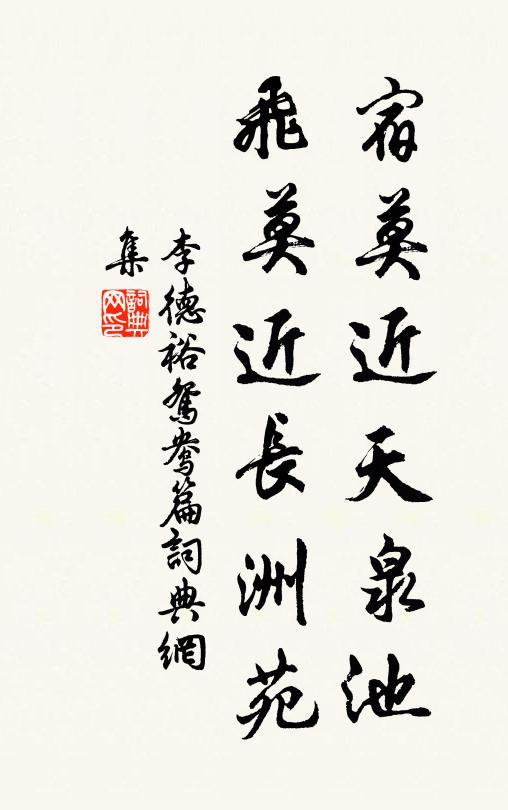 宿莫近天泉池
飛莫近長洲苑
李德裕鴛鴦篇詞典網
集
詞典網印